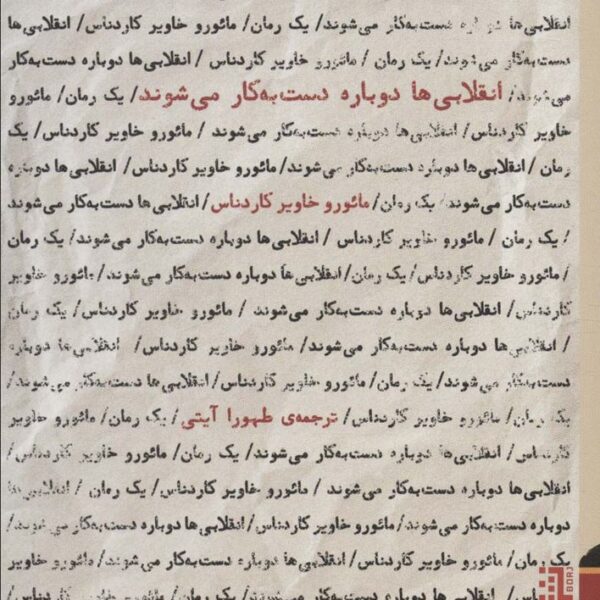 انقلابی‌ها دوباره دست‌به‌کار می‌شوند/ یک رمان/ مائورو خاویر کاردناس/ انقلابی‌ها
دست‌به‌کار می‌شوند/ یک رمان / مائورو خاویر کاردناس / انقلابی‌ها دوباره دست‌به‌کار
می‌شوند/ انقلابی‌ها دوباره دست‌به‌کار می‌شوند/ یک رمان/ مائورو
خاویر کاردناس/ انقلابی‌ها دوباره دست‌به‌کار می‌شوند / مائورو خاویر کاردناس/ یک
رمان / انقلابی‌ها دوباره دست‌به‌کار می‌شوند/ مائورو خاویر کاردناس/ انقلابی‌ها دوباره
دست‌به‌کار می‌شوند/ یک رمان/ مائورو خاویر کاردناس/ انقلابی‌ها دست‌به‌کار می‌شوند
/ یک رمان / مائورو خاویر کاردناس / انقلابی‌ها دوباره دست‌به‌کار می‌شوند/ یک رمان
/ مائورو خاویر کاردناس/ یک رمان/ انقلابی‌ها دوباره دست‌به‌کار می‌شوند/ مائورو خاویر
کاردناس/ انقلابی‌ها دوباره دست‌به‌کار می‌شوند / مائورو خاویر کاردناس/ یک رمان
/ انقلابی‌ها دوباره دست‌به‌کار می‌شوند/ مائورو خاویر کاردناس/ انقلابی‌ها دوباره
دست‌به‌کار می‌شوند/ یک رمان/ مائورو خاویر کاردناس/ انقلابی‌ها دست‌به‌کار می‌شوند/
یک رمان/ مائورو خاویر کاردناس/ ترجمه‌ی طهورا آیتی/ یک رمان/ مائورو خاویر
کاردناس/ انقلابی‌ها دوباره دست‌به‌کار می‌شوند/ یک رمان/ مائورو خاویر کاردناس/
انقلابی‌ها دوباره دست‌به‌کار می‌شوند / مائورو خاویر کاردناس/ یک رمان / انقلابی‌ها
دوباره دست‌به‌کار می‌شوند/ مائورو خاویر کاردناس/ انقلابی‌ها دوباره دست‌به‌کار می‌شوند/
یک رمان/ مائورو خاویر کاردناس/ انقلابی‌ها دست‌به‌کار می‌شوند/ مائورو خاویر
انقلابی‌ها دوباره دست‌به‌کار می‌شوند/ یک رمان/ مائورو خاویر کاردناس/
BORJ